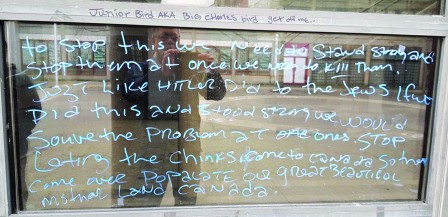 Junior Bird AKA Big CHIEFS bird get off me..
to Stop this we Need to Stand strong and
Stop them at once we need to Kill Them.
Just Like HITLER Did to the Jews If we
Did this and stood strong we WOULD
Souve the Problem AT ones. STOP
Leting the Chinks come to CANADA So they
Come over Popalate our great Beautiful
mother Land CANADA.